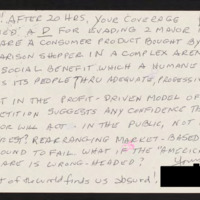 ! AFTER 20 HRS, YOUR COVERAGE
A D FOR EVADING 2 MAJOR
ARE A CONSUMER PRODUCT BOUGHT BY
ARISON SHOPPER IN A COMPLEX AREN
SOCIAL BENEFIT WHICH A HUMANE
S ITS PEOPLE THRU ADEQUATE, PROGRESSIV
T IN THE PROFIT-DRIVEN MODEL OF
ETITION SUGGESTS ANY CONFIDENCE TH
OR WILL ACT. IN THE PUBLIC, NOT
REST? REARRANGING MARKET-BASED
OUND TO FAIL. WHAT IF THE "AMERICA
ARE IS WRONG-HEADED?
Yours
t of the world finds us absurd!